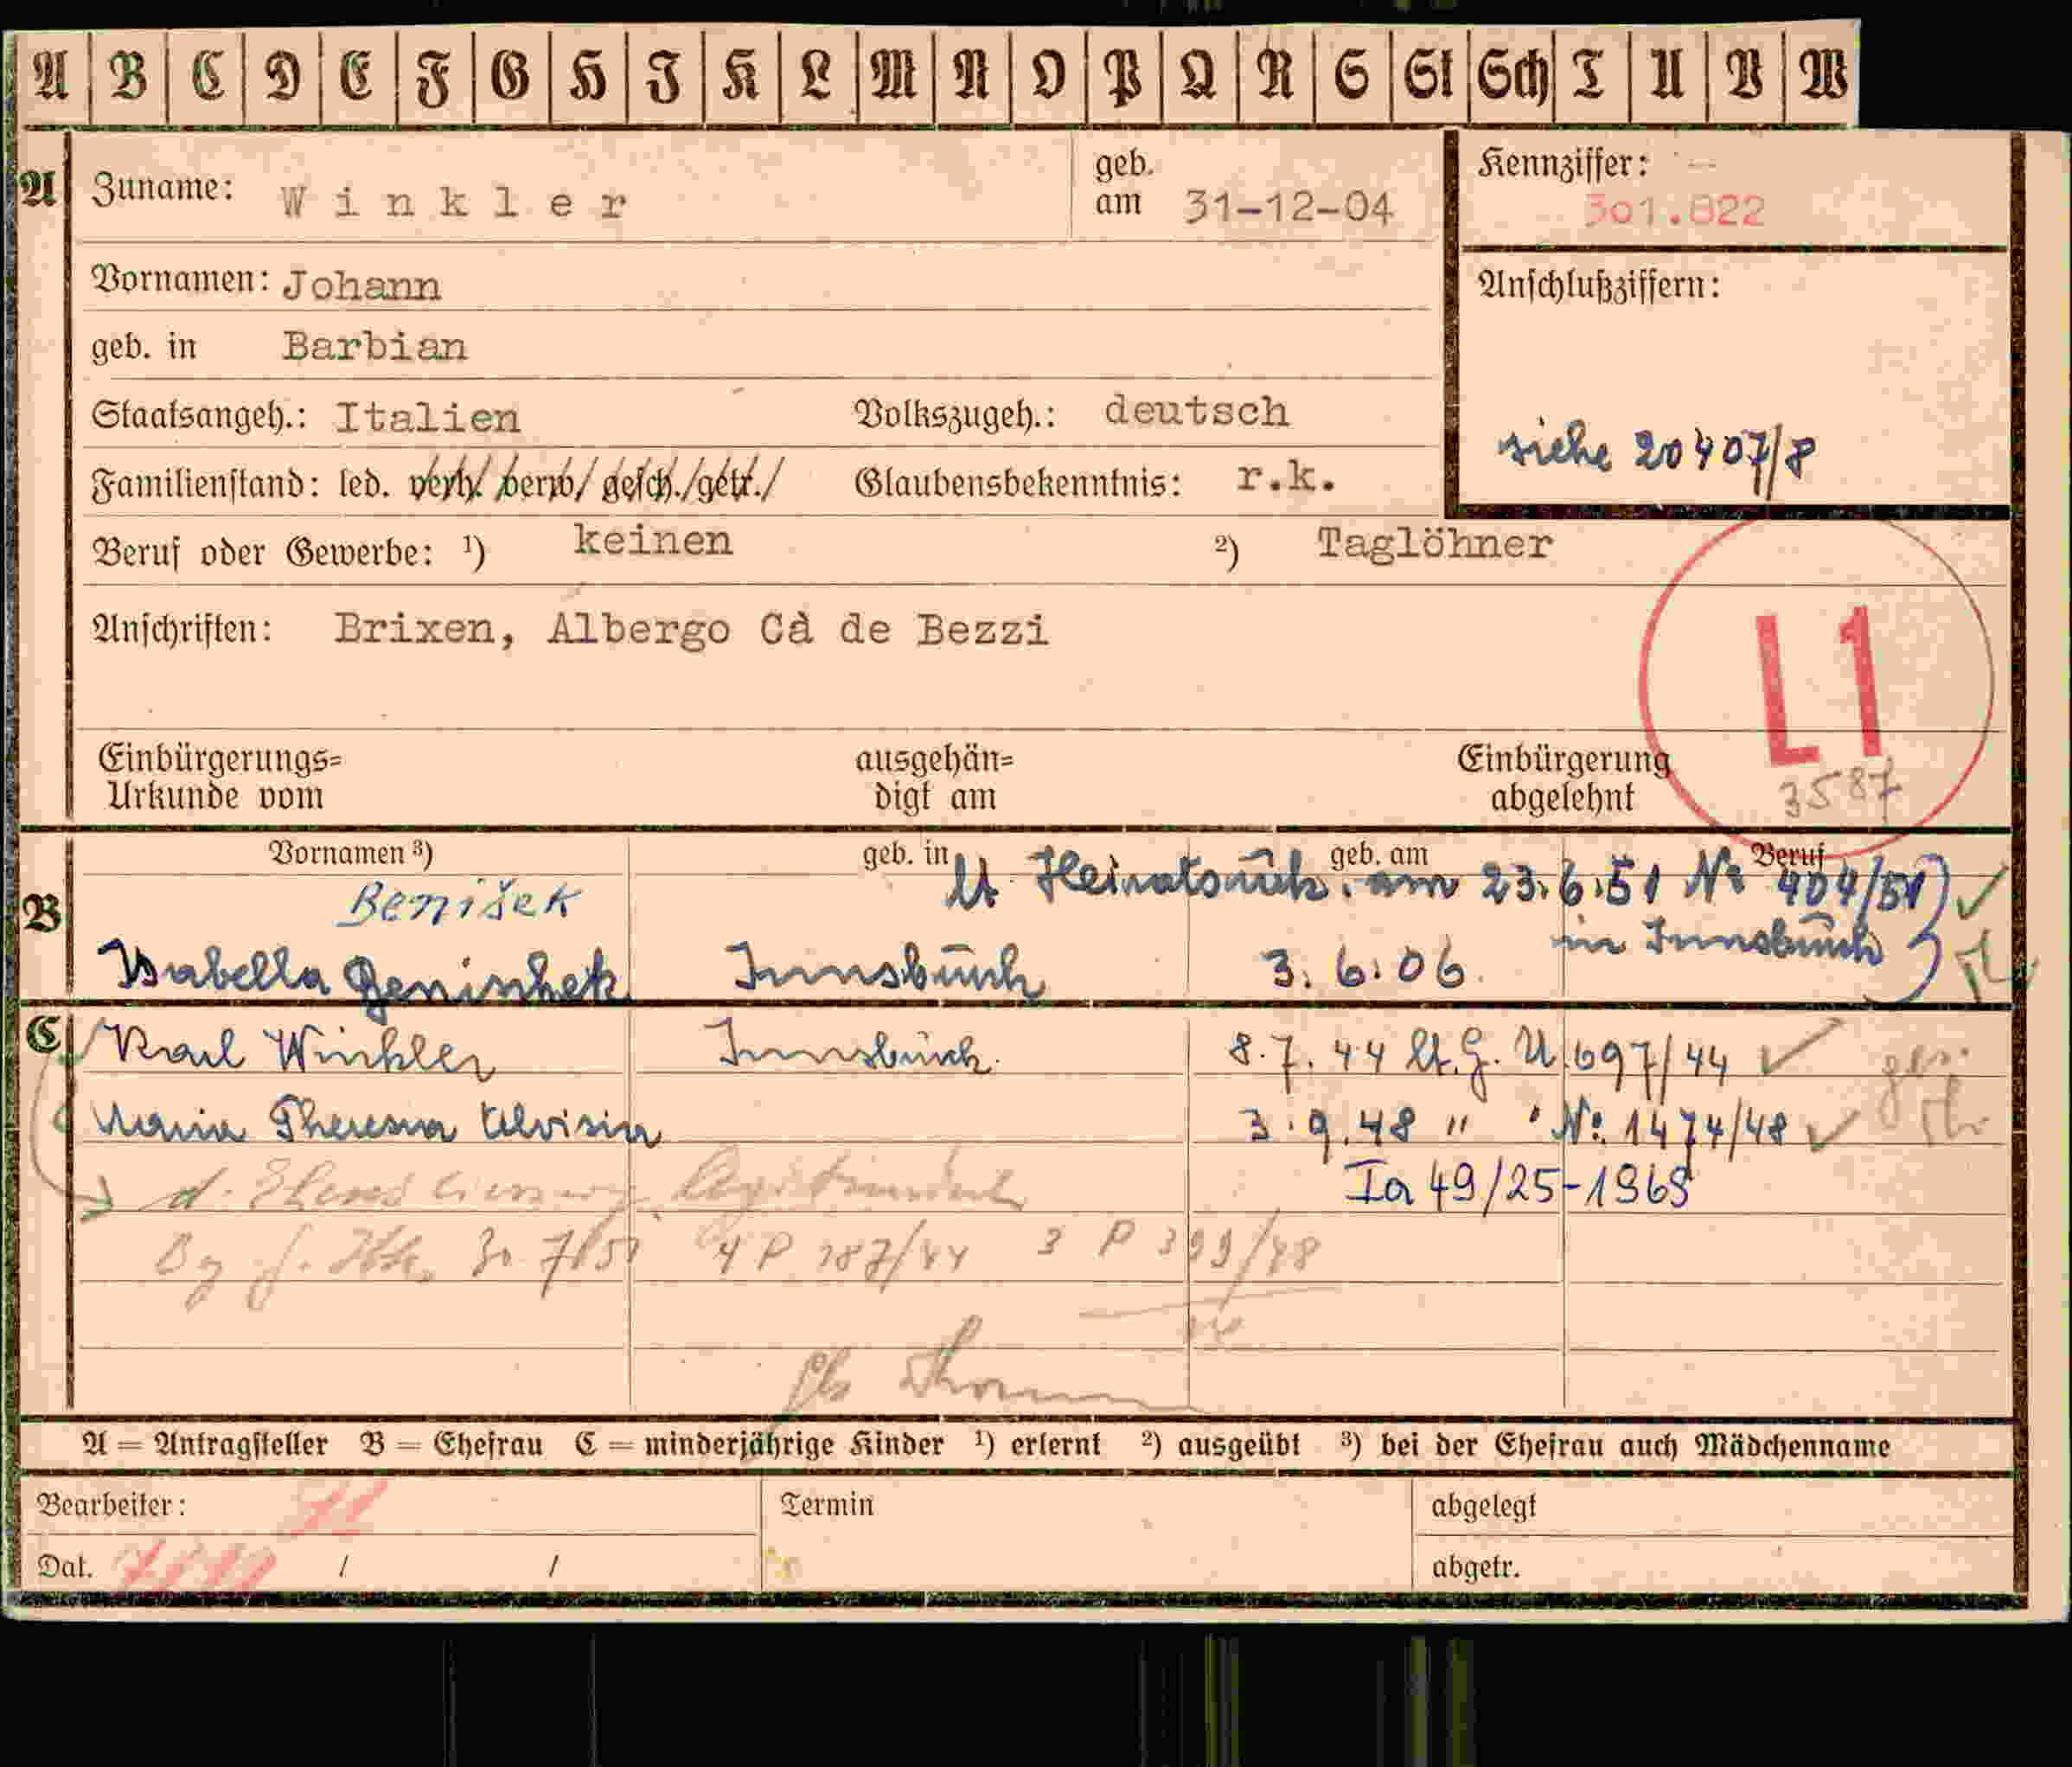 A B C D E F G H J K L M N O P Q R S St Sch T U V W
A Zuname: Winkler geb. am 31-12-04 Kennziffer: 301.822
Vornamen: Johann Anschlußziffern:
geb. in Barbian
Staatsangeh.: Italien Volkszugeh.: deutsch siehe 20407/8
Familienstand: led. verh./ verw/ gesch./getr./ Glaubensbekenntnis: r.k.
Beruf oder Gewerbe: ¹) keinen ²) Taglöhner
Anschriften: Brixen, Albergo Cà de Bezzi
L1
Einbürgerungs= ausgehän= Einbürgerung
Urkunde vom digt am abgelehnt 3587
B Vornamen ³) geb. in geb. am Beruf
Benišek lt Heiratsurk. am 23.6.51 Nr 404/51
in Innsbruck
Isabella Benischek Innsbruck 3.6.06.
C Karl Winkler Innsbruck. 8.7.44 lt. G. U 697/44
Maria Theresia Aloisia 3.9.48 " " Nr. 1474/48
Ia 49/25-1969
4 P 187/44 3 P 399/48
A = Antragsteller B = Ehefrau C = minderjährige Kinder ¹) erlernt ²) ausgeübt ³) bei der Ehefrau auch Mädchenname
Bearbeiter: Termin abgelegt
Dat. / / abgetr.